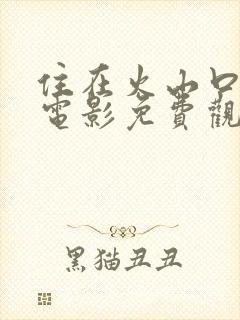 住在火山口
電影免費觀
黑猫丑丑